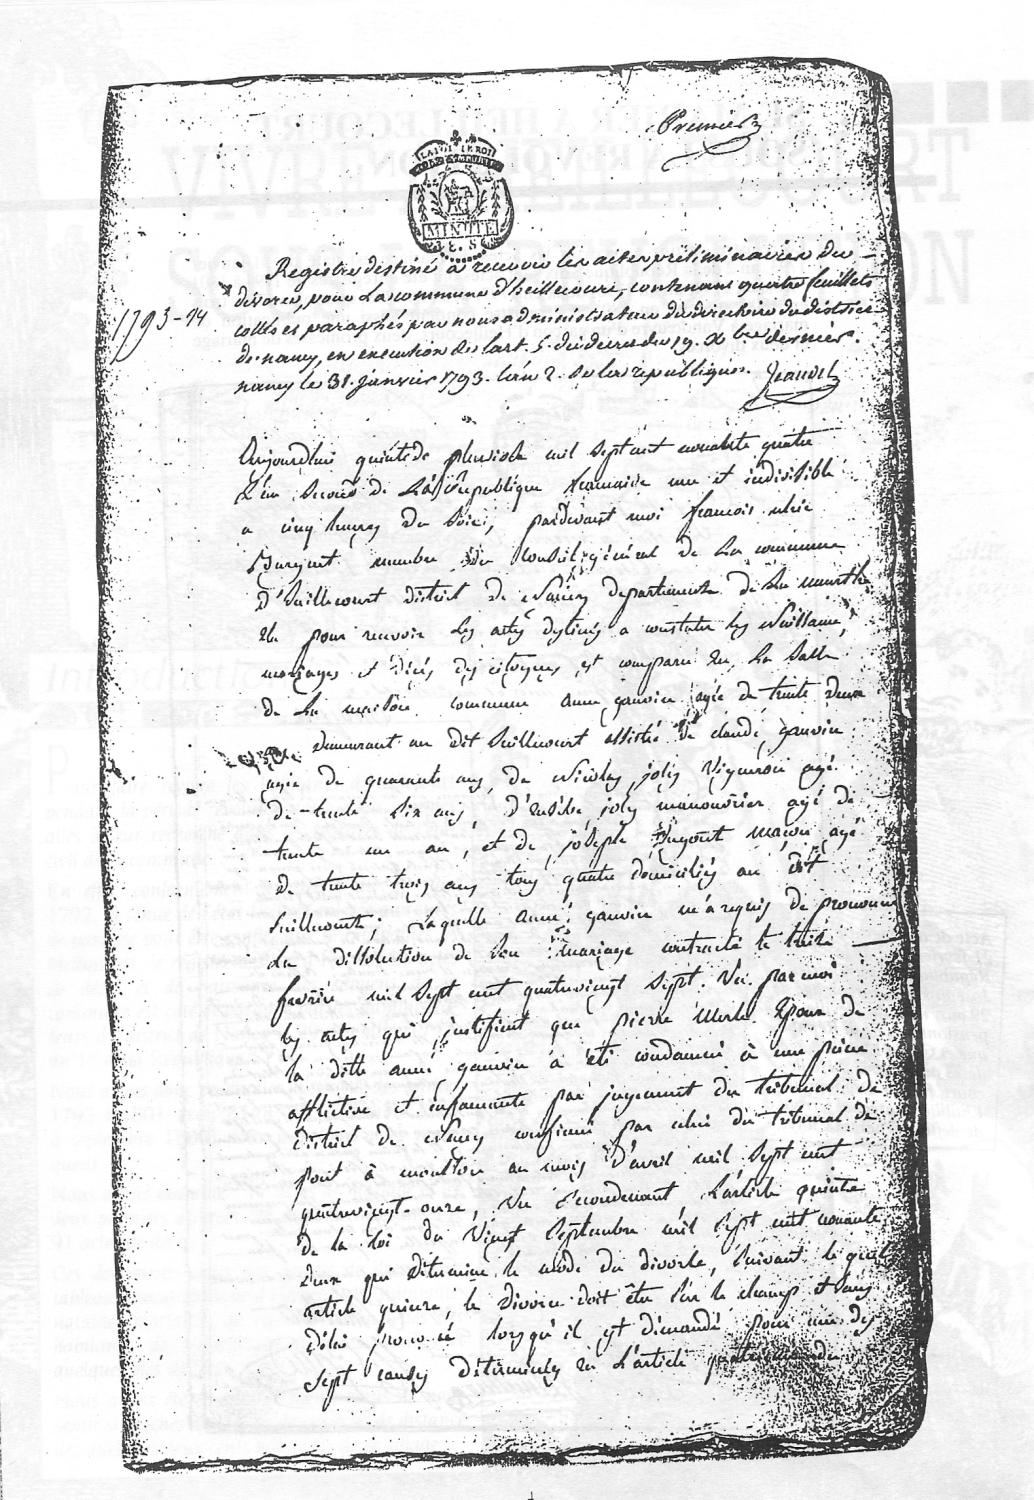 Premier
LA LOI LE ROI
MINUTE
8. S
Registre destiné à recevoir les actes préliminaires du
divorce, pour La commune d'heillecourt, contenant quatre feuillets
1793-94
cottés et paraphés par nous administrateur du directoire du district
de nancy, en execution de l'art. 5. du decret du 19. Xbre dernier.
nancy le 31. janvier 1793. l'an 2. de la république. Jeandel
Aujourdhui quinte de pluviose mil sept cent nonante quatre
L'an Second de La République francaise une et indivisible
a cinq heures du soir, pardevant moi francois
membre du Conseil général de La commune
d'heillecourt district de Nancy departement de La meurthe
élu pour recevoir les actes destinés a constater les Naissances,
mariages et décès des citoyens, est comparu en La Salle
de La maison commune anne gauvin agée de trente deux
demeurant au dit heillecourt assisté de claude gauvin
agé de quarante ans, de Nicolas joly Vigneron agé
de trente six ans, d'Eusèbe joly manouvrier agé de
trente un an, et de joseph maçon agé
de trente trois ans tous quatre domiciliés au dit
heillecourt; Laquelle anne gauvin m'a requis de prononcer
la dissolution de son mariage contracté le treize
fevrier mil sept cent quatrevingt sept. Vu par moi
les actes qui justifient que pierre Epoux de
la ditte anne gauvin à été condamné à une peine
afflictive et infamante par jugement du tribunal de
District de Nancy confirmé par celui du tribunal de
pont à mousson au mois d'avril mil sept cent
quatrevingt-onze, Vu Secondement L'article quinze
de la Loi du Vingt Septembre mil sept cent nonante
deux qui détermine le mode du divorce, suivant le quel
article quinze, le divorce doit être sur le champ et sans
délai prononcé lorsqu'il est démandé pour une des
sept causes déterminées en L'article